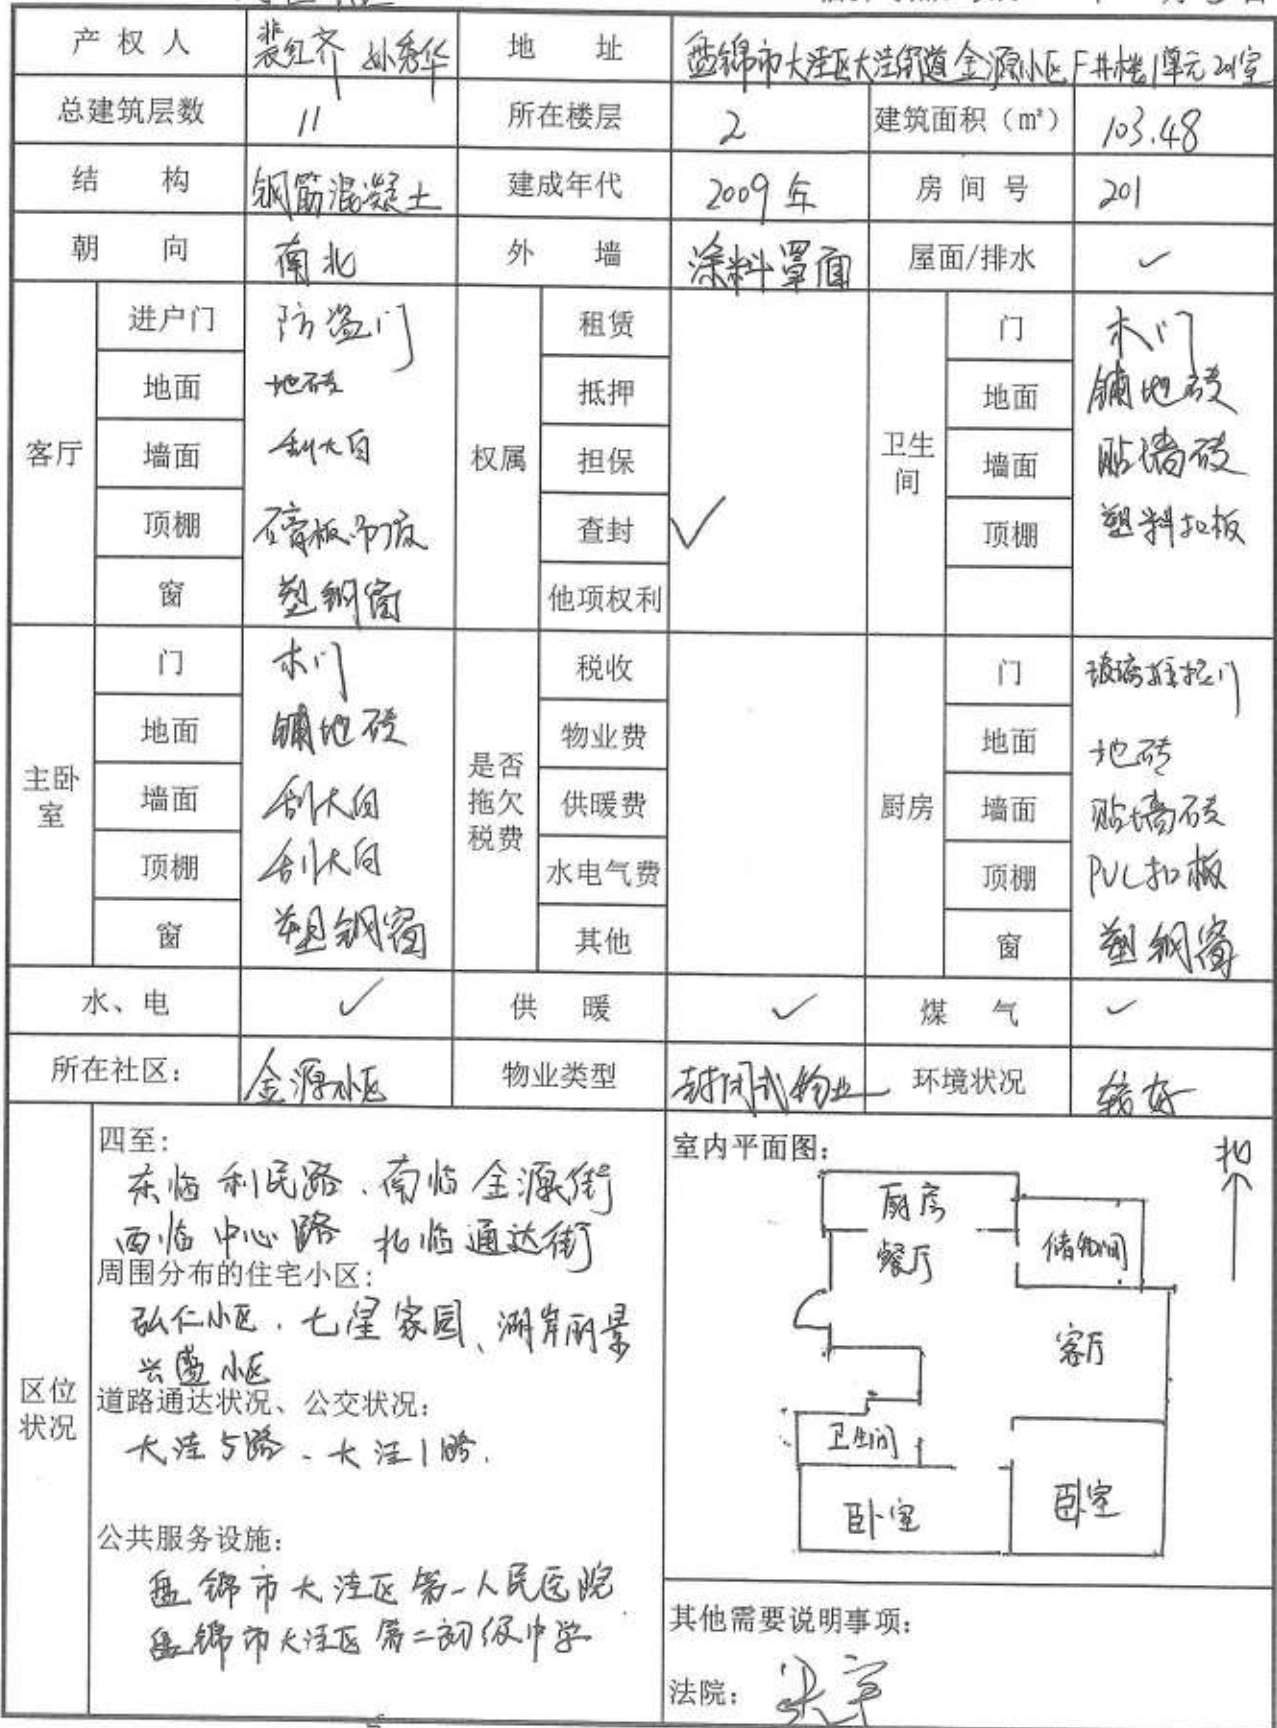 产权人 裴红齐 孙秀华 地址 盘锦市大洼区大洼街道金源小区F井楼1单元201室
总建筑层数 11 所在楼层 2 建筑面积（m²） 103.48
结构 钢筋混凝土 建成年代 2009年 房间号 201
朝向 南北 外墙 涂料罩面 屋面/排水 ✓
客厅 进户门 防盗门 权属 租赁 卫生间 门 木门
地面 地砖 抵押 地面 铺地砖
墙面 刮大白 担保 墙面 贴墙砖
顶棚 石膏板吊顶 查封 ✓ 顶棚 塑料扣板
窗 塑钢窗 他项权利
主卧室 门 木门 是否拖欠税费 税收 厨房 门 玻璃推拉门
地面 铺地砖 物业费 地面 地砖
墙面 刮大白 供暖费 墙面 贴墙砖
顶棚 刮大白 水电气费 顶棚 PVC扣板
窗 塑钢窗 其他 窗 塑钢窗
水、电 ✓ 供暖 ✓ 煤气 ✓
所在社区： 金源小区 物业类型 封闭式物业 环境状况 较好
区位状况
四至：
东临利民路、南临金源街
西临中心路 北临通达街
周围分布的住宅小区：
弘仁小区、七星家园、湖岸丽景
兴盛小区
道路通达状况、公交状况：
大洼5路、大洼1路.
公共服务设施：
盘锦市大洼区第一人民医院
盘锦市大洼区第二初级中学
室内平面图：
北
厨房
餐厅
储物间
客厅
卫生间
卧室
卧室
其他需要说明事项：
法院：